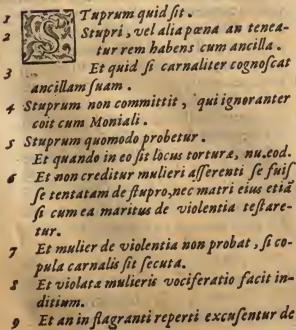 1 STuprum quid sit.
2 Stupri, vel alia pœna an tenea-
tur rem habens cum ancilla.
3 Et quid si carnaliter cognoscat
ancillam suam.
4 Stuprum non committit, qui ignoranter
coit cum Moniali.
5 Stuprum quomodo probetur.
Et quando in eo sit locus torturæ, nu.eod.
6 Et non creditur mulieri asserenti se fuis
se tentatam de stupro, nec matri eius etiā
si cum ea maritus de violentia testare-
tur.
7 Et mulier de violentia non probat, si co-
pula carnalis sit secuta.
8 Et violata mulieris vociferatio facit in-
ditium.
9 Et an in flagranti reperti excusentur de